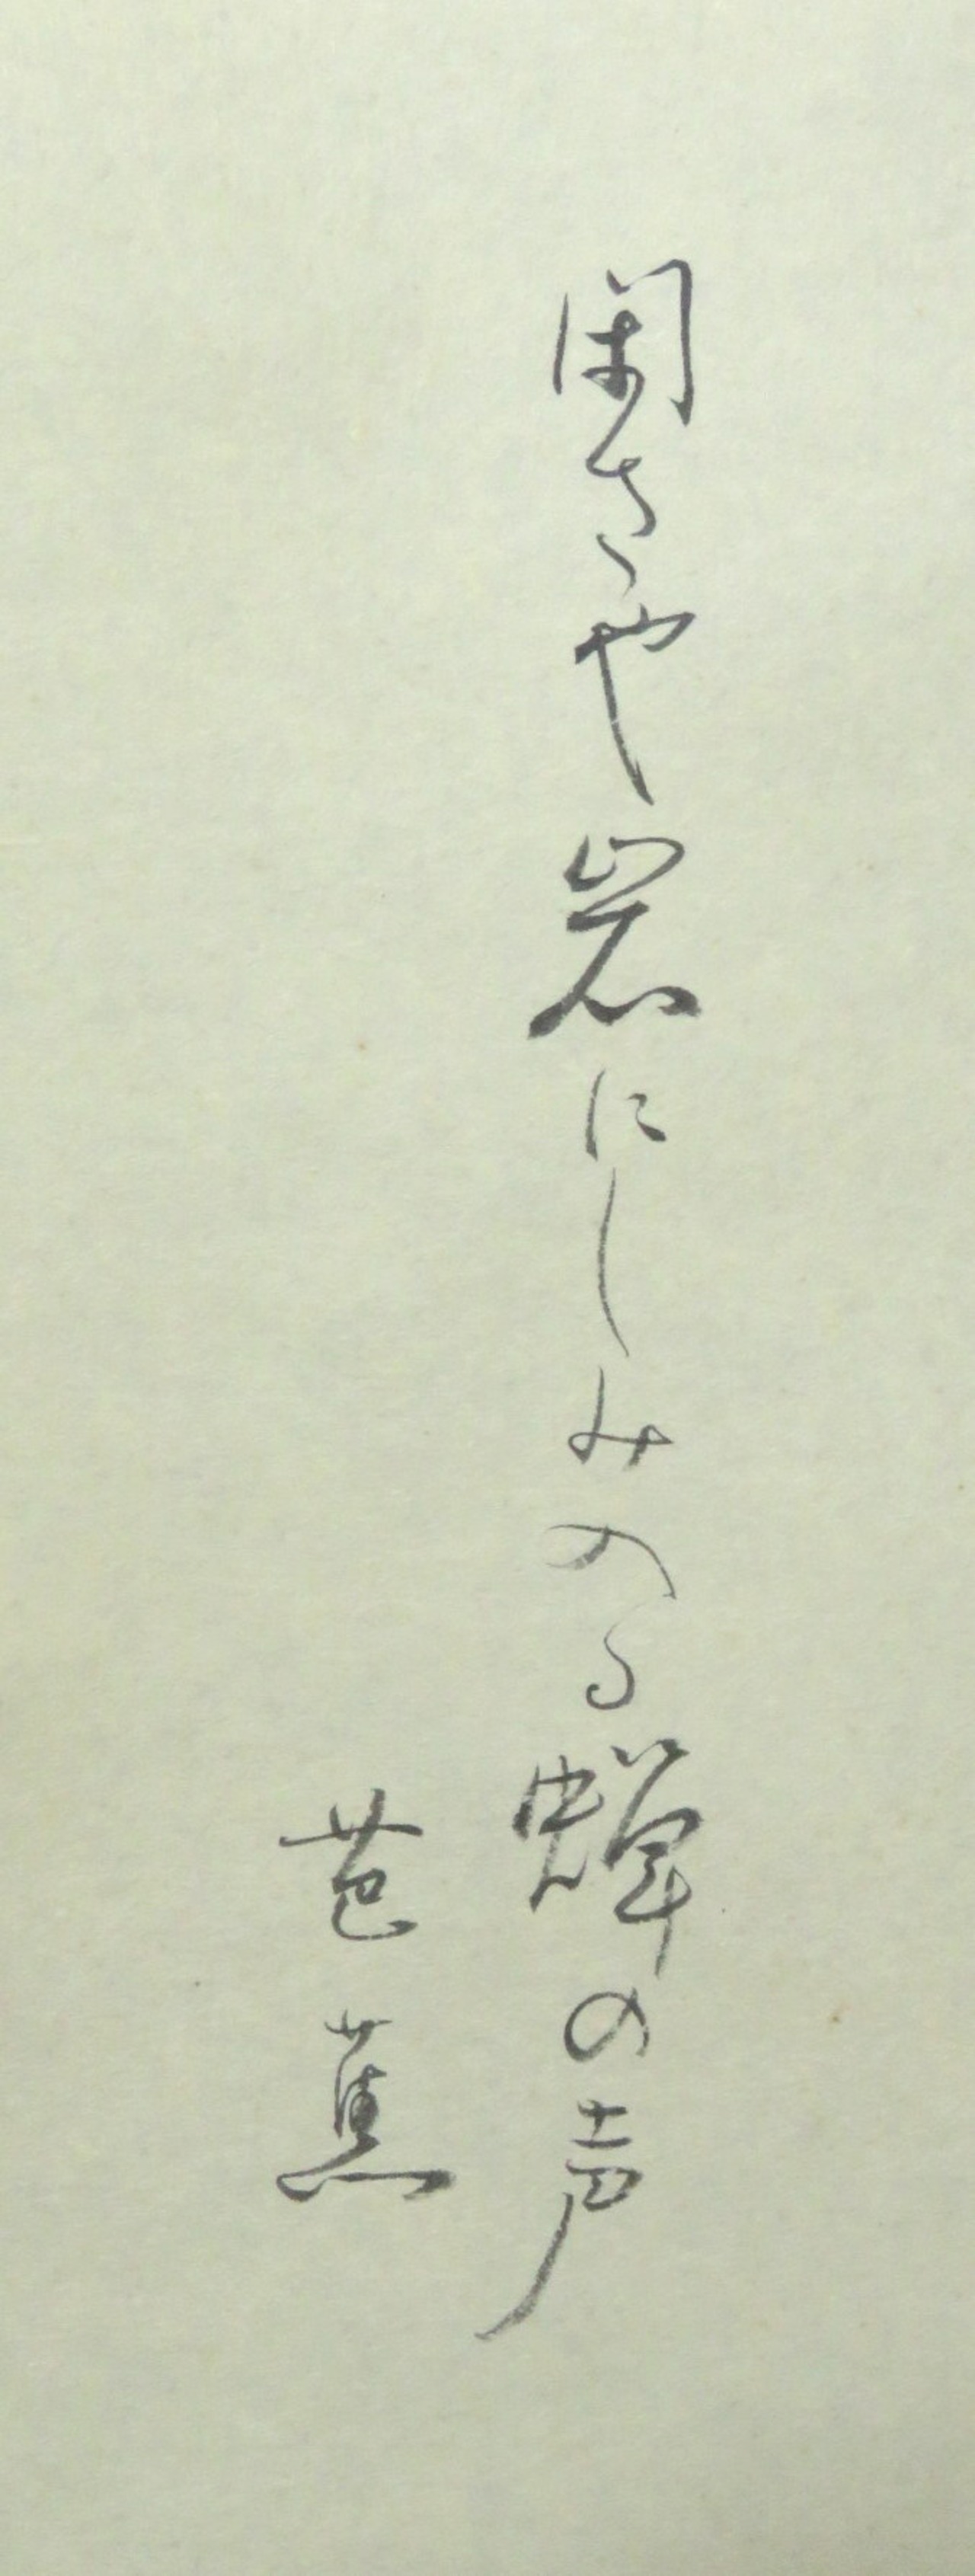 閑さや岩にしみの る蝉の声
芭蕉